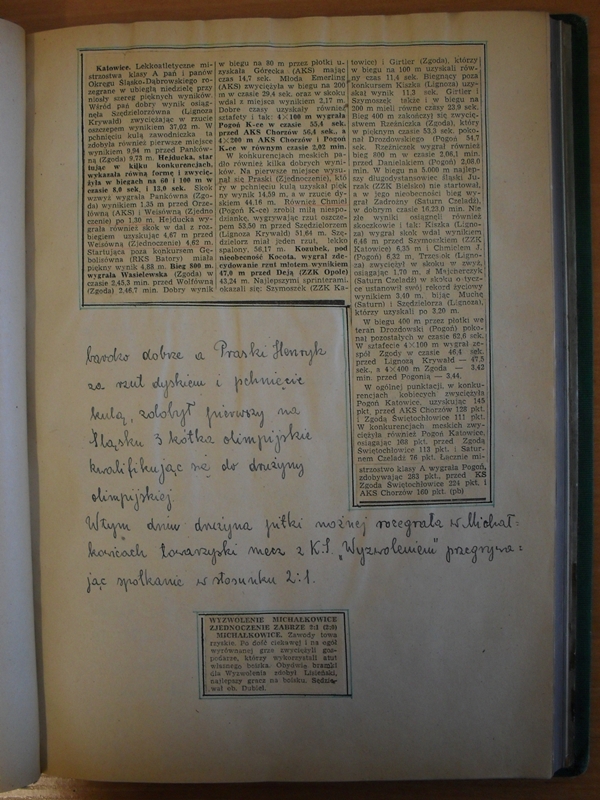 Katowice. Lekkoatletyczne mi-
strzostwa klasy A pań i panów
Okręgu Śląsko-Dąbrowskiego ro-
zegrane w ubiegłą niedzielę przy
niosły szereg pięknych wyników.
Wśród pań dobry wynik osiąg-
nęła Szędzielorzówna (Lignoza
Krywałd) zwyciężając w rzucie
oszczepem wynikiem 37,02 m. W
pchnięciu kulą zawodniczka ta
zdobyła również pierwsze miejsce
wynikiem 9,94 m przed Panków-
ną (Zgoda) 9,73 m. Hejducka, star
tując w kilku konkurencjach,
wykazała równą formę i zwycię-
żyła w biegach na 60 i 100 m w
czasie 8,0 sek. i 13,0 sek. Skok
wzwyż wygrała Pankówna (Zgo-
da) wynikiem 1,35 m przed Orze-
łówną (AKS) i Weisówną (Zjedno
czenie) po 1,30 m. Hejducka wy-
grała również skok w dal z roz-
biegiem uzyskując 4,67 m przed
Weisówną (Zjednoczenie) 4,62 m.
Startująca poza konkursem Gę-
bolisówna (RKS Batory) miała
piękny wynik 4,88 m. Bieg 800 m.
wygrała Wasielewska (Zgoda) w
czasie 2,45,3 min. przed Wolfówną
(Zgoda) 2,46,7 min. Dobry wynik
w biegu na 80 m przez płotki u-
zyskała Górecka (AKS) mając
czas 14,7 sek. Młoda Emerling
(AKS) zwyciężyła w biegu na 200
m w czasie 29,4 sek. oraz w skoku
wdal z miejsca wynikiem 2,17 m.
Dobre czasy uzyskały również
sztafety i tak: 4×100 m wygrała
Pogoń K-ce w czasie 55,4 sek.
przed AKS Chorzów 56,4 sek., a
4×200 m AKS Chorzów i Pogoń
K-ce w równym czasie 2,02 min.
W konkurencjach męskich pa-
dło również kilka dobrych wyni-
ków. Na pierwsze miejsce wysu-
nął się Praski (Zjednoczenie), któ
ry w pchnięciu kulą uzyskał pięk
ny wynik 14,59 m. a w rzucie dy-
skiem 44,16 m. Również Chmiel
(Pogoń K-ce) zrobił miłą niespo-
dziankę, wygrywając rzut oszcze-
pem 53,50 m przed Szędzielorzem
(Lignoza Krywałd) 51,64 m. Szę-
dzielorz miał jeden rzut, lekko
spalony, 56,17 m. Kozubek, pod
nieobecność Kocota, wygrał zde-
cydowanie rzut młotem wynikiem
47,0 m przed Deją (ZZK Opole)
43,24 m. Najlepszymi sprinterami
okazali się: Szymoszek (ZZK Ka-
towice) i Girtler (Zgoda), którzy
w biegu na 100 m uzyskali rów-
ny czas 11,4 sek. Biegnący poza
konkursem Kiszka (Lignoza) uzy-
skał wynik 11,3 sek. Girtler i
Szymoszek także i w biegu na
200 m mieli równe czasy 23,9 sek.
Bieg 400 m zakończył się zwycię-
stwem Rzeźniczka (Zgoda), który
w pięknym czasie 53,3 sek. poko-
nał Drozdowskiego (Pogoń) 54,7
sek. Rzeźniczek wygrał również
bieg 800 m w czasie 2,06,1 min.
przed Danielakiem (Pogoń) 2,08,0
min. W biegu na 5.000 m najlep-
szy długodystansowiec śląski Ju-
rzak (ZZK Bielsko) nie startował,
a w jego nieobecności bieg wy-
grał Zadrożny (Saturn Czeladź),
w dobrym czasie 16,23,0 min. Nie
złe wyniki osiągnęli również
skoczkowie i tak: Kiszka (Ligno-
za) wygrał skok wdal wynikiem
6,46 m przed Szymoszkiem (ZZK
Katowice) 6,35 m i Chmielem J.
(Pogoń) 6,32 m,
zwyciężył w skoku w zwyż,
osiągając 1,70 m, a Majcherczyk
(Saturn Czeladź) w skoku o tycz-
ce ustanowił swój rekord życiowy
wynikiem 3,40 m, bijąc Muchę
(Saturn) i Szędzielorza (Lignoza),
którzy uzyskali po 3,20 m.
W biegu 400 m przez płotki we
teran Drozdowski (Pogoń) poko-
nał pozostałych w czasie 62,6 sek.
W sztafecie 4×100 m wygrał ze-
spół Zgody w czasie 46,4 sek.
przed Lignozą Krywałd — 47,5
sek., a 4×400 m Zgoda — 3,42
min. przed Pogonią — 3,44.
W ogólnej punktacji, w konku-
rencjach kobiecych zwyciężyła
Pogoń Katowice, uzyskując 145
pkt, przed AKS Chorzów 128 pkt.
i Zgodą Świętochłowice 111 pkt.
W konkurencjach męskich zwy-
ciężyła również Pogoń Katowice,
osiągając 168 pkt. przed Zgodą
Świętochłowice 113 pkt. i Satur-
nem Czeladź 76 pkt. Łącznie mi-
strzostwo klasy A wygrała Pogoń,
zdobywając 263 pkt., przed KS
Zgoda Świętochłowice 224 pkt. i
AKS Chorzów 160 pkt. (pb)
bardzo dobrze a Praski Henryk
za rzut dyskiem i pchnięcie
kulą, zdobył pierwszy na
Śląsku 3 kółka olimpijskie
kwalifikując się do drużyny
olimpijskiej.
W tym dniu drużyna piłki nożnej rozegrała w Michał-
kowicach towarzyski mecz z K.S. „Wyzwoleniem" przegrywa-
jąc spotkanie w stosunku 2:1.
WYZWOLENIE MICHAŁKOWICE
ZJEDNOCZENIE ZABRZE 2:1 (2:0)
MICHAŁKOWICE. Zawody towa
rzyskie. Po dość ciekawej i na ogół
wyrównanej grze zwyciężyli gos-
podarze, którzy wykorzystali atut
własnego boiska. Obydwie bramki
dla Wyzwolenia zdobył Lizieński,
najlepszy gracz na boisku. Sędzio-
wał ob. Dubiel.